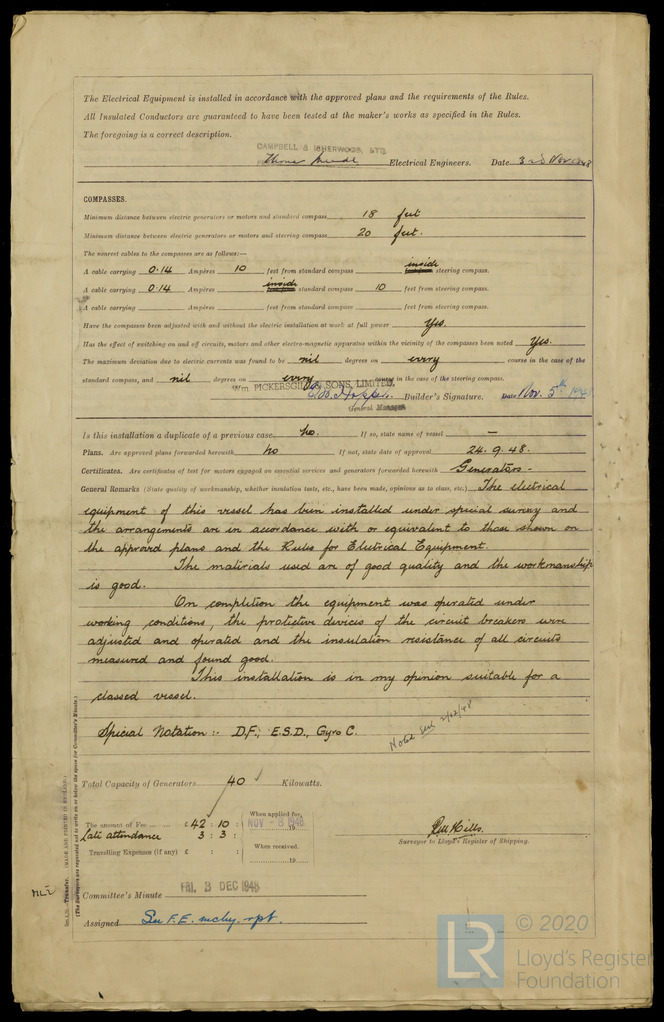 The Electrical Equipment is installed in accordance with the approved plans and the requirements of the Rules.
All Insulated Conductors are guaranteed to have been tested at the maker's works as specified in the Rules.
The foregoing is a correct description.
CAMPBELL & ISHERWOOD, LTD.
Electrical Engineers. Date 3rd Nov. 1948
COMPASSES.
Minimum distance between electric generators or motors and standard compass 18 feet
Minimum distance between electric generators or motors and steering compass 20 feet.
The nearest cables to the compasses are as follows:—
A cable carrying 0.14 Ampères 10 feet from standard compass inside steering compass.
A cable carrying 0.14 Ampères inside standard compass 10 feet from steering compass.
A cable carrying Ampères feet from standard compass feet from steering compass.
Have the compasses been adjusted with and without the electric installation at work at full power Yes.
Has the effect of switching on and off circuits, motors and other electro-magnetic apparatus within the vicinity of the compasses been noted Yes.
The maximum deviation due to electric currents was found to be nil degrees on every course in the case of the
standard compass, and nil degrees on every course in the case of the steering compass.
Wm. PICKERSGILL & SONS, LIMITED.
Builder's Signature. Date Nov. 5th 1948
General Manager
Is this installation a duplicate of a previous case no. If so, state name of vessel —
Plans. Are approved plans forwarded herewith no If not, state date of approval 24.9.48.
Certificates. Are certificates of test for motors engaged on essential services and generators forwarded herewith Generators -
General Remarks (State quality of workmanship, whether insulation tests, etc., have been made, opinions as to class, etc.) The electrical
equipment of this vessel has been installed under special survey and
the arrangements are in accordance with or equivalent to those shown on
the approved plans and the Rules for Electrical Equipment.
The materials used are of good quality and the workmanship
is good.
On completion the equipment was operated under
working conditions, the protective devices of the circuit breakers were
adjusted and operated and the insulation resistance of all circuits
measured and found good.
This installation is in my opinion suitable for a
classed vessel.
Special Notation :- D.F., E.S.D., Gyro C.
Noted
Total Capacity of Generators 40 Kilowatts.
The amount of Fee £ 42 : 10 :
When applied for,
NOV - 8 1948
19
Late attendance 3 : 3 :
Travelling Expenses (if any) £ : :
When received.
19
Surveyor to Lloyd's Register of Shipping.
Committee's Minute FRI. 3 DEC 1948
Assigned See F.E. mchy. rpt.
Transfer. (MADE AND PRINTED IN ENGLAND.)
(The Surveyors are requested not to write on or below the space for Committee's Minute.)
LR
© 2020
Lloyd's Register
Foundation